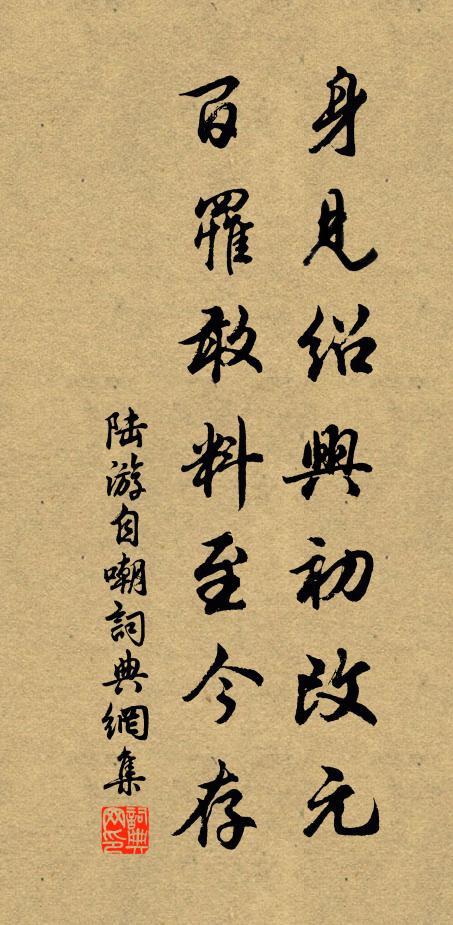 身見紹興初改元
百罹敢料至今存
陆游自嘲詞典網集
詞典網印